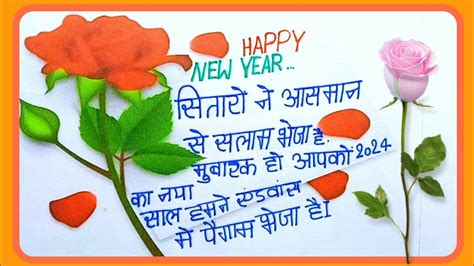 HAPPY
NEW YEAR...
सितारों ने आसमान
से सलाम भेजा है.
मुबारक हो आपको 2024
का नया
साल हमने एडवांस
मे पैगाम भेजा है।